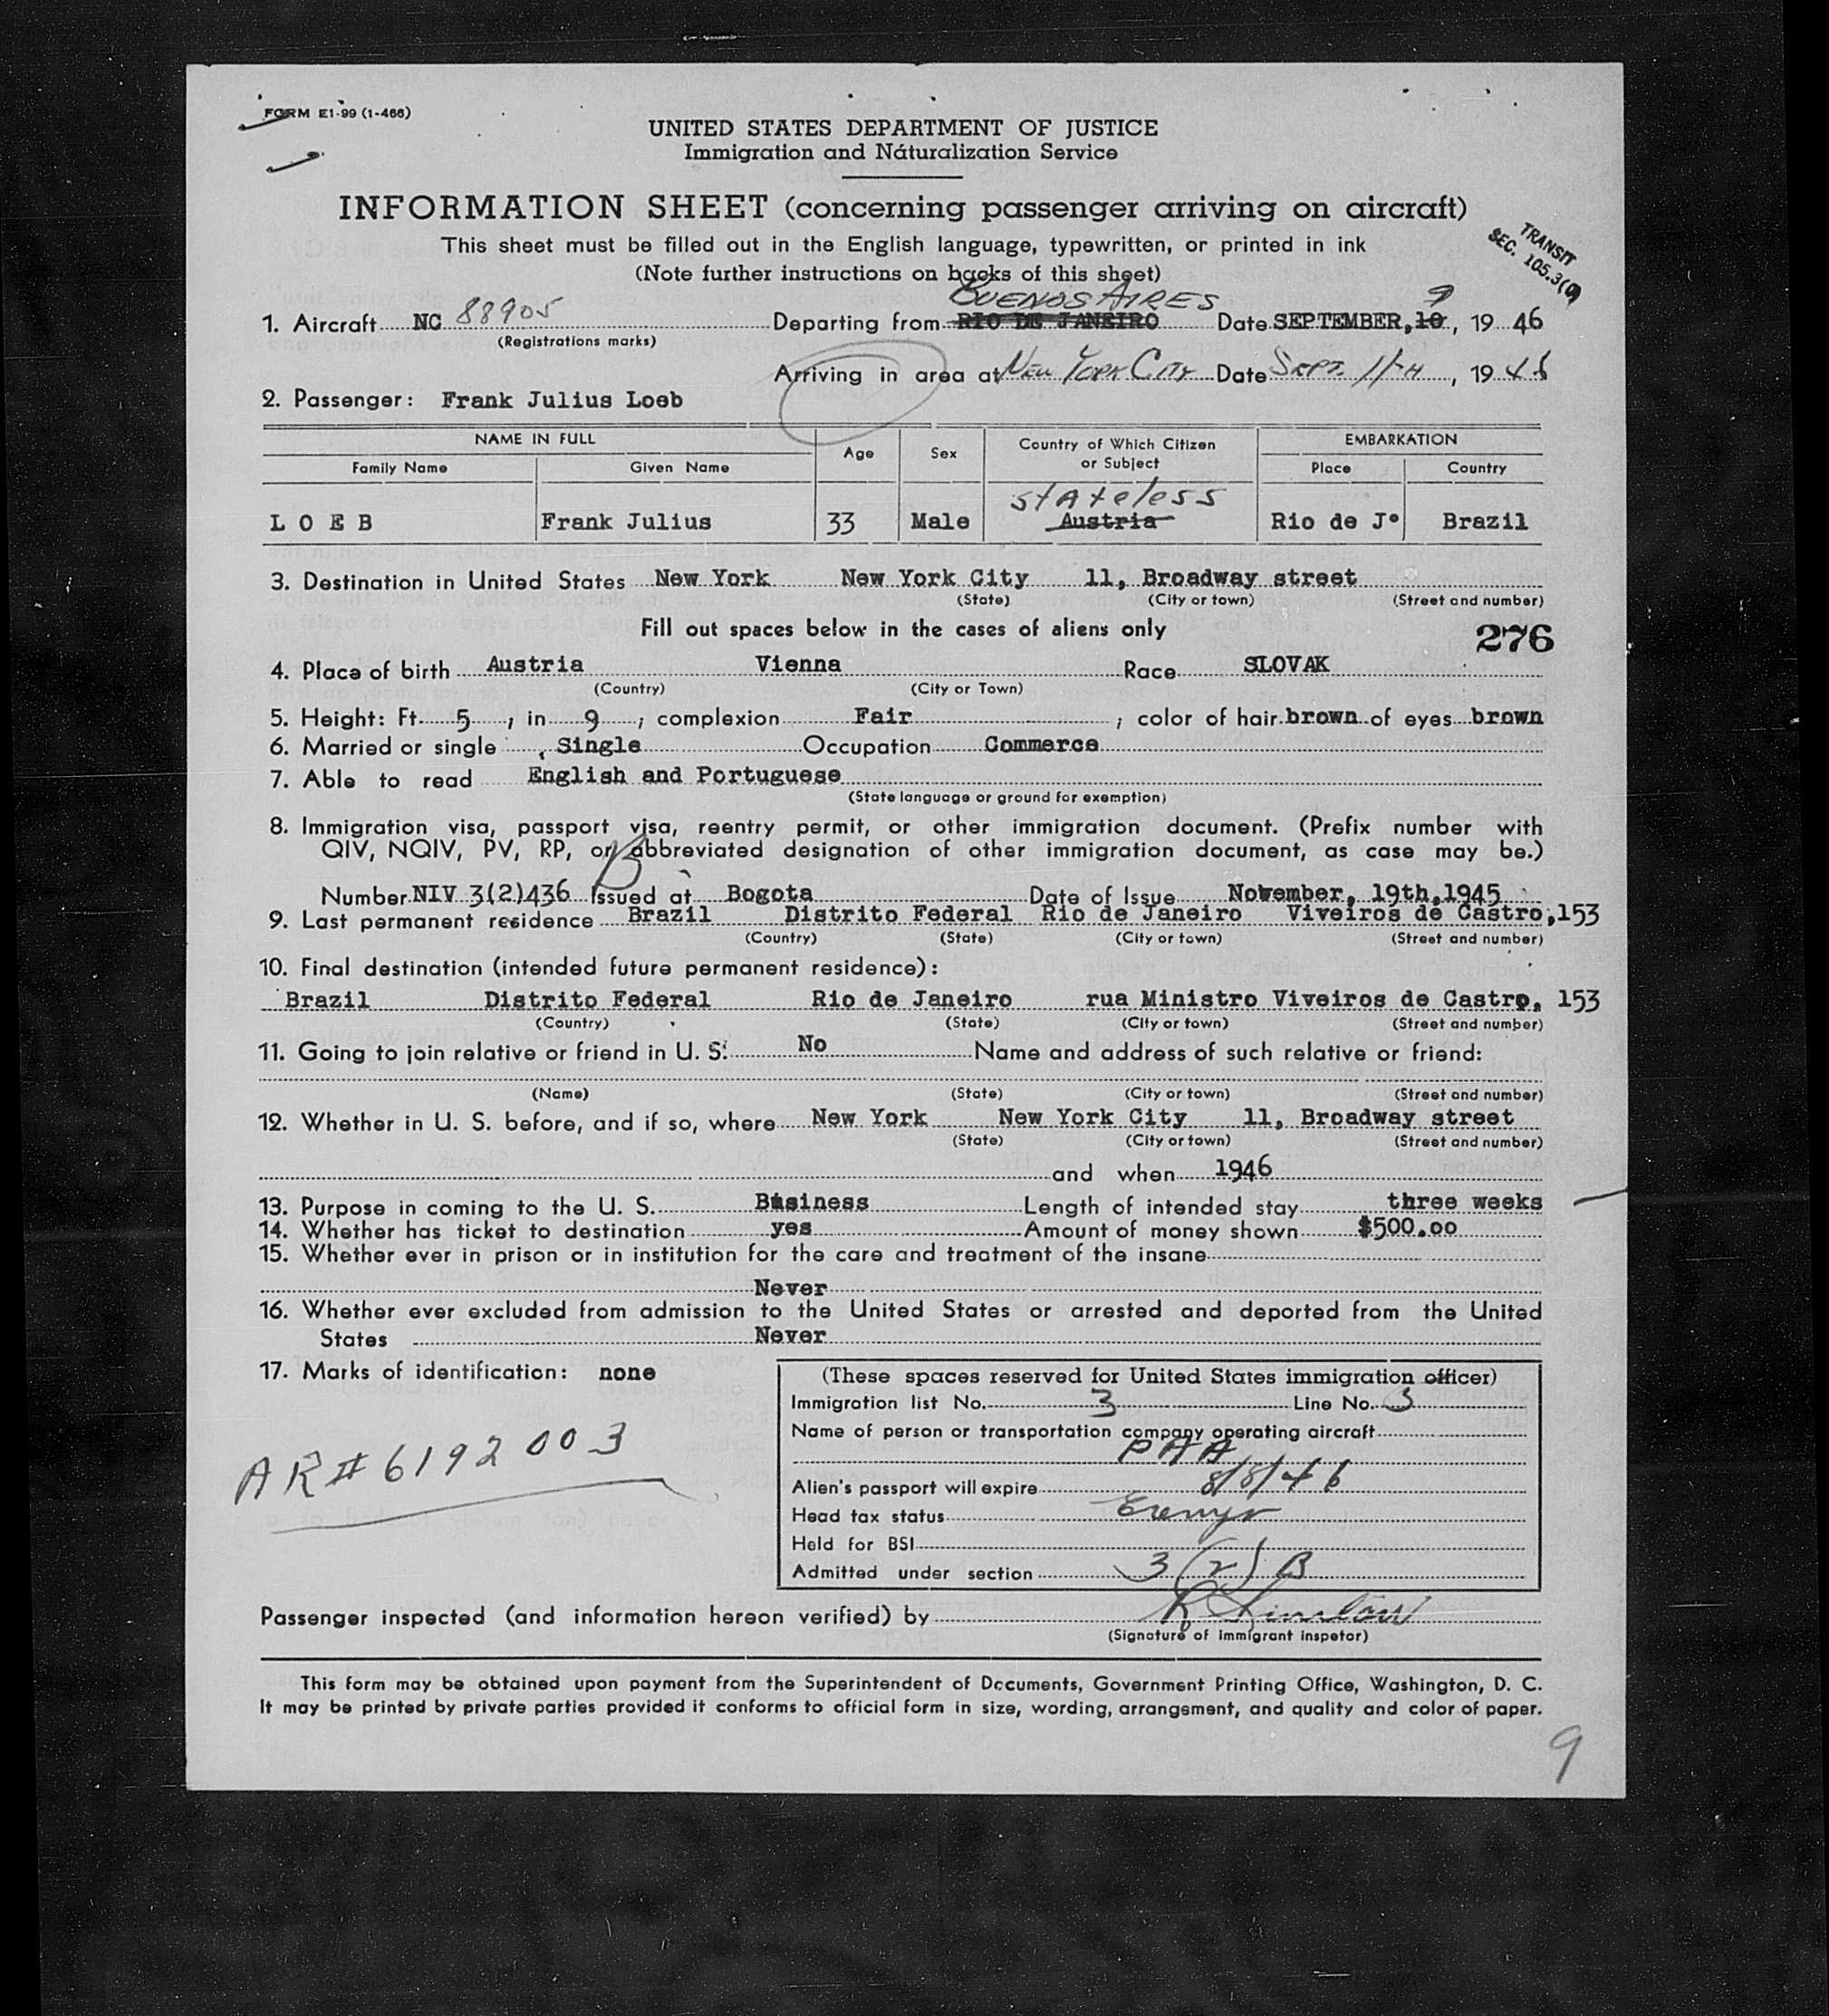 FORM E1-99 (1-466)
UNITED STATES DEPARTMENT OF JUSTICE
Immigration and Naturalization Service
INFORMATION SHEET (concerning passenger arriving on aircraft)
This sheet must be filled out in the English language, typewritten, or printed in ink
(Note further instructions on backs of this sheet)
TRANSIT
SEC. 105.3(
BUENOS AIRES 9
1. Aircraft NC 88905 Departing from RIO DE JANEIRO Date SEPTEMBER, 10, 19 46
(Registrations marks)
Arriving in area at New York City Date Sept. 11TH, 19 46
2. Passenger: Frank Julius Loeb
NAME IN FULL Age Sex Country of Which Citizen or Subject EMBARKATION
Family Name Given Name Place Country
stateless
LOEB Frank Julius 33 Male Austria Rio de Jº Brazil
3. Destination in United States New York New York City 11, Broadway street
(State) (City or town) (Street and number)
Fill out spaces below in the cases of aliens only
276
4. Place of birth Austria Vienna Race SLOVAK
(Country) (City or Town)
5. Height: Ft. 5, in 9; complexion Fair; color of hair brown of eyes brown
6. Married or single Single Occupation Commerce
7. Able to read English and Portuguese
(State language or ground for exemption)
8. Immigration visa, passport visa, reentry permit, or other immigration document. (Prefix number with
QIV, NQIV, PV, RP, or abbreviated designation of other immigration document, as case may be.)
B
Number NIV 3(2)436 Issued at Bogota Date of Issue November, 19th, 1945
9. Last permanent residence Brazil Distrito Federal Rio de Janeiro Viveiros de Castro, 153
(Country) (State) (City or town) (Street and number)
10. Final destination (intended future permanent residence):
Brazil Distrito Federal Rio de Janeiro rua Ministro Viveiros de Castro, 153
(Country) (State) (City or town) (Street and number)
11. Going to join relative or friend in U. S. No Name and address of such relative or friend:
(Name) (State) (City or town) (Street and number)
12. Whether in U. S. before, and if so, where New York New York City 11, Broadway street
(State) (City or town) (Street and number)
and when 1946
13. Purpose in coming to the U. S. Business Length of intended stay three weeks
14. Whether has ticket to destination yes Amount of money shown $500.00
15. Whether ever in prison or in institution for the care and treatment of the insane
Never
16. Whether ever excluded from admission to the United States or arrested and deported from the United
States Never
17. Marks of identification: none
AR# 6192003
(These spaces reserved for United States immigration officer)
Immigration list No. 3 Line No. 3
Name of person or transportation company operating aircraft
PAA
Alien's passport will expire 8/8/46
Head tax status Exempt
Held for BSI
Admitted under section 3(2) B
Passenger inspected (and information hereon verified) by
(Signature of Immigrant Inspetor)
This form may be obtained upon payment from the Superintendent of Documents, Government Printing Office, Washington, D. C.
It may be printed by private parties provided it conforms to official form in size, wording, arrangement, and quality and color of paper.
9